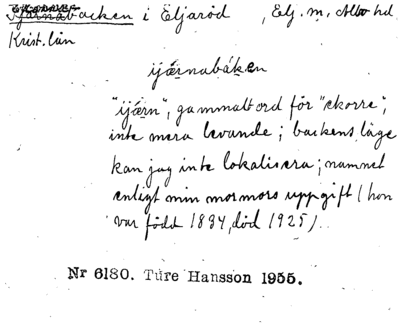 Tjärnabacken i Eljaröd, Elj. sn, Albo hd
Krist. län
ijǽrnabáken
"ijǽrn", gammalt ord för "ekorre",
inte mera levande; backens läge
kan jag inte lokalisera; namnet
enligt min mormors uppgift (hon
var född 1834, död 1925).
Nr 6180. Ture Hansson 1955.